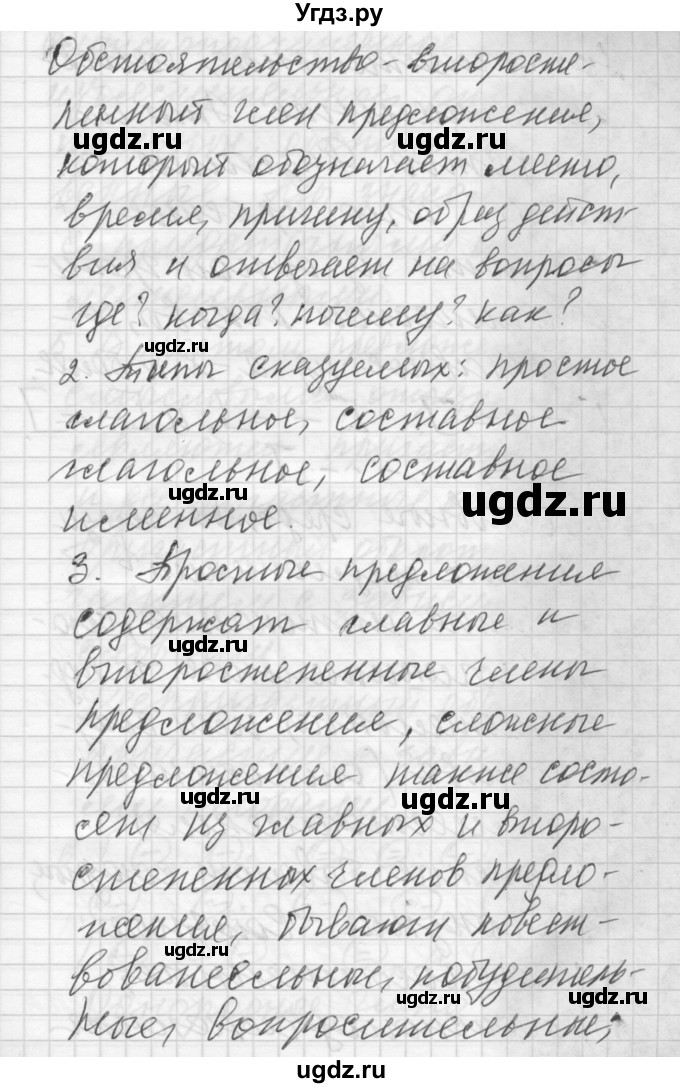 Угдз.ру
Обстоятельство - второсте-
пенный член предложения,
ugdz.ru ugdz.ru
который обозначает место,
время, причину, образ дейст-
вия и отвечает на вопросы
где? когда? почему? как?
ugdz.ru
2. Типы сказуемых: простое
глагольное, составное
глагольное, составное
ugdz.ru ugdz.ru
именное.
3. Простые предложения
содержат главные и
ugdz.ru
второстепенные члены
предложения, сложные
предложения также состо-
ugdz.ru ugdz.ru
ят из главных и второ-
степенных членов предло-
жения, бывают повест-
ugdz.ru
вовательные, побудитель-
ugdz.ru ugdz.ru
ные, вопросительные;
ugdz.ru